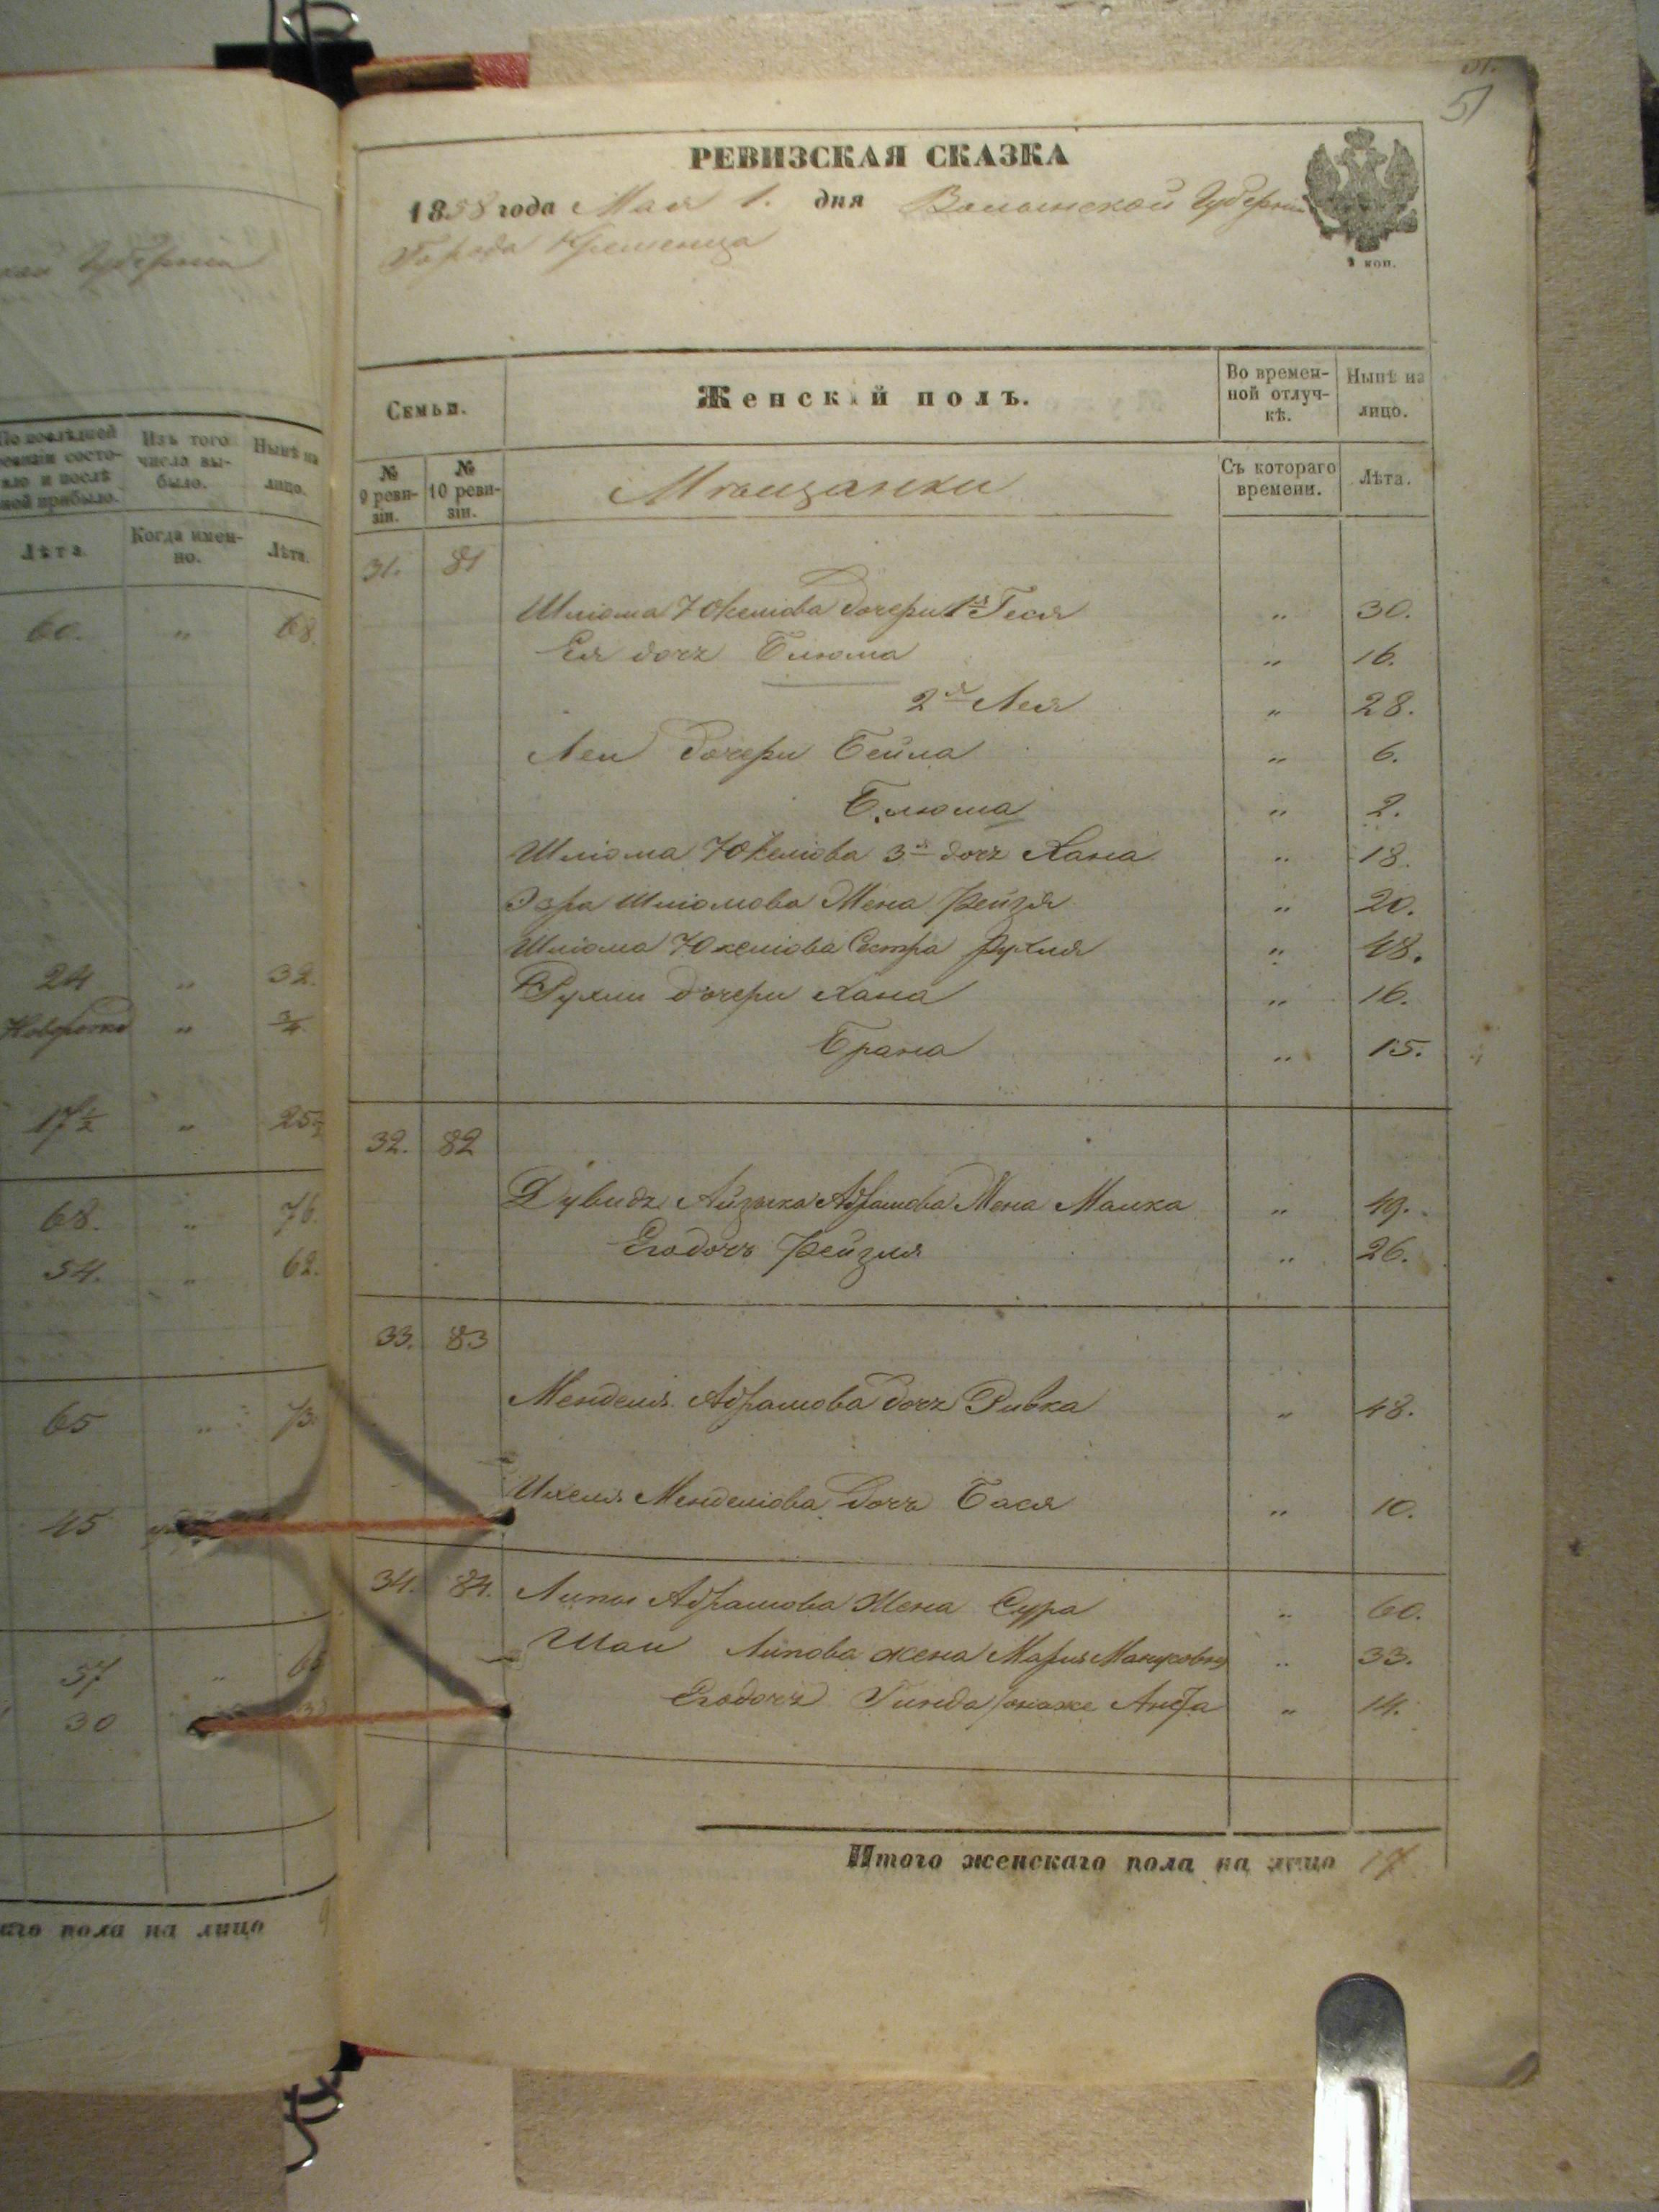 51
РЕВИЗСКАЯ СКАЗКА
1858 года Мая 1. дня Волынской Губерніи
Города Кременца
Семьи.
Женскій полъ.
Во времен-
ной отлуч-
кѣ.
Нынѣ на
лицо.
№
9 реви-
зіи.
№
10 реви-
зіи.
Мѣщанки
Съ котораго
времени.
Лѣта.
31. 81
Шліома Юкеліова дочери 1я Геся „ 30.
Ея дочь Блюма „ 16.
2я Лея „ 28.
Леи дочери Бейла „ 6.
Блюма „ 2.
Шліома Юкеліова 3я дочь Хана „ 18.
Эзра Шліомова Жена Фейга „ 20.
Шліома Юкеліова Сестра Рухля „ 48.
Рухли дочери Хана „ 16.
Брана „ 15.
32. 82
Дувидъ Айзыка Абрамова Жена Малка „ 49.
Его дочь Рейзля „ 26.
33. 83
Менделя Абрамова дочь Ривка „ 48.
Ихеля Менделіова дочь Бася „ 10.
34. 84. Липы Абрамова Жена Сура „ 60.
Шаи Липова жена Марія „ 33.
Его дочь Гинда онаже „ 14.
Итого женскаго пола на лицо 17
Губерніи
По послѣдней
ревизіи состо-
яло и послѣ
ной прибыло.
Изъ того
числа вы-
было.
Нынѣ на
лицо.
Лѣта
Когда имен-
но.
Лѣта.
60. „ 68.
24 „ 32.
„ 3/4.
17 1/2 „ 25 1/2
68. „ 76.
54. „ 62.
65 „ 73.
45
57 „
30
пола на лицо